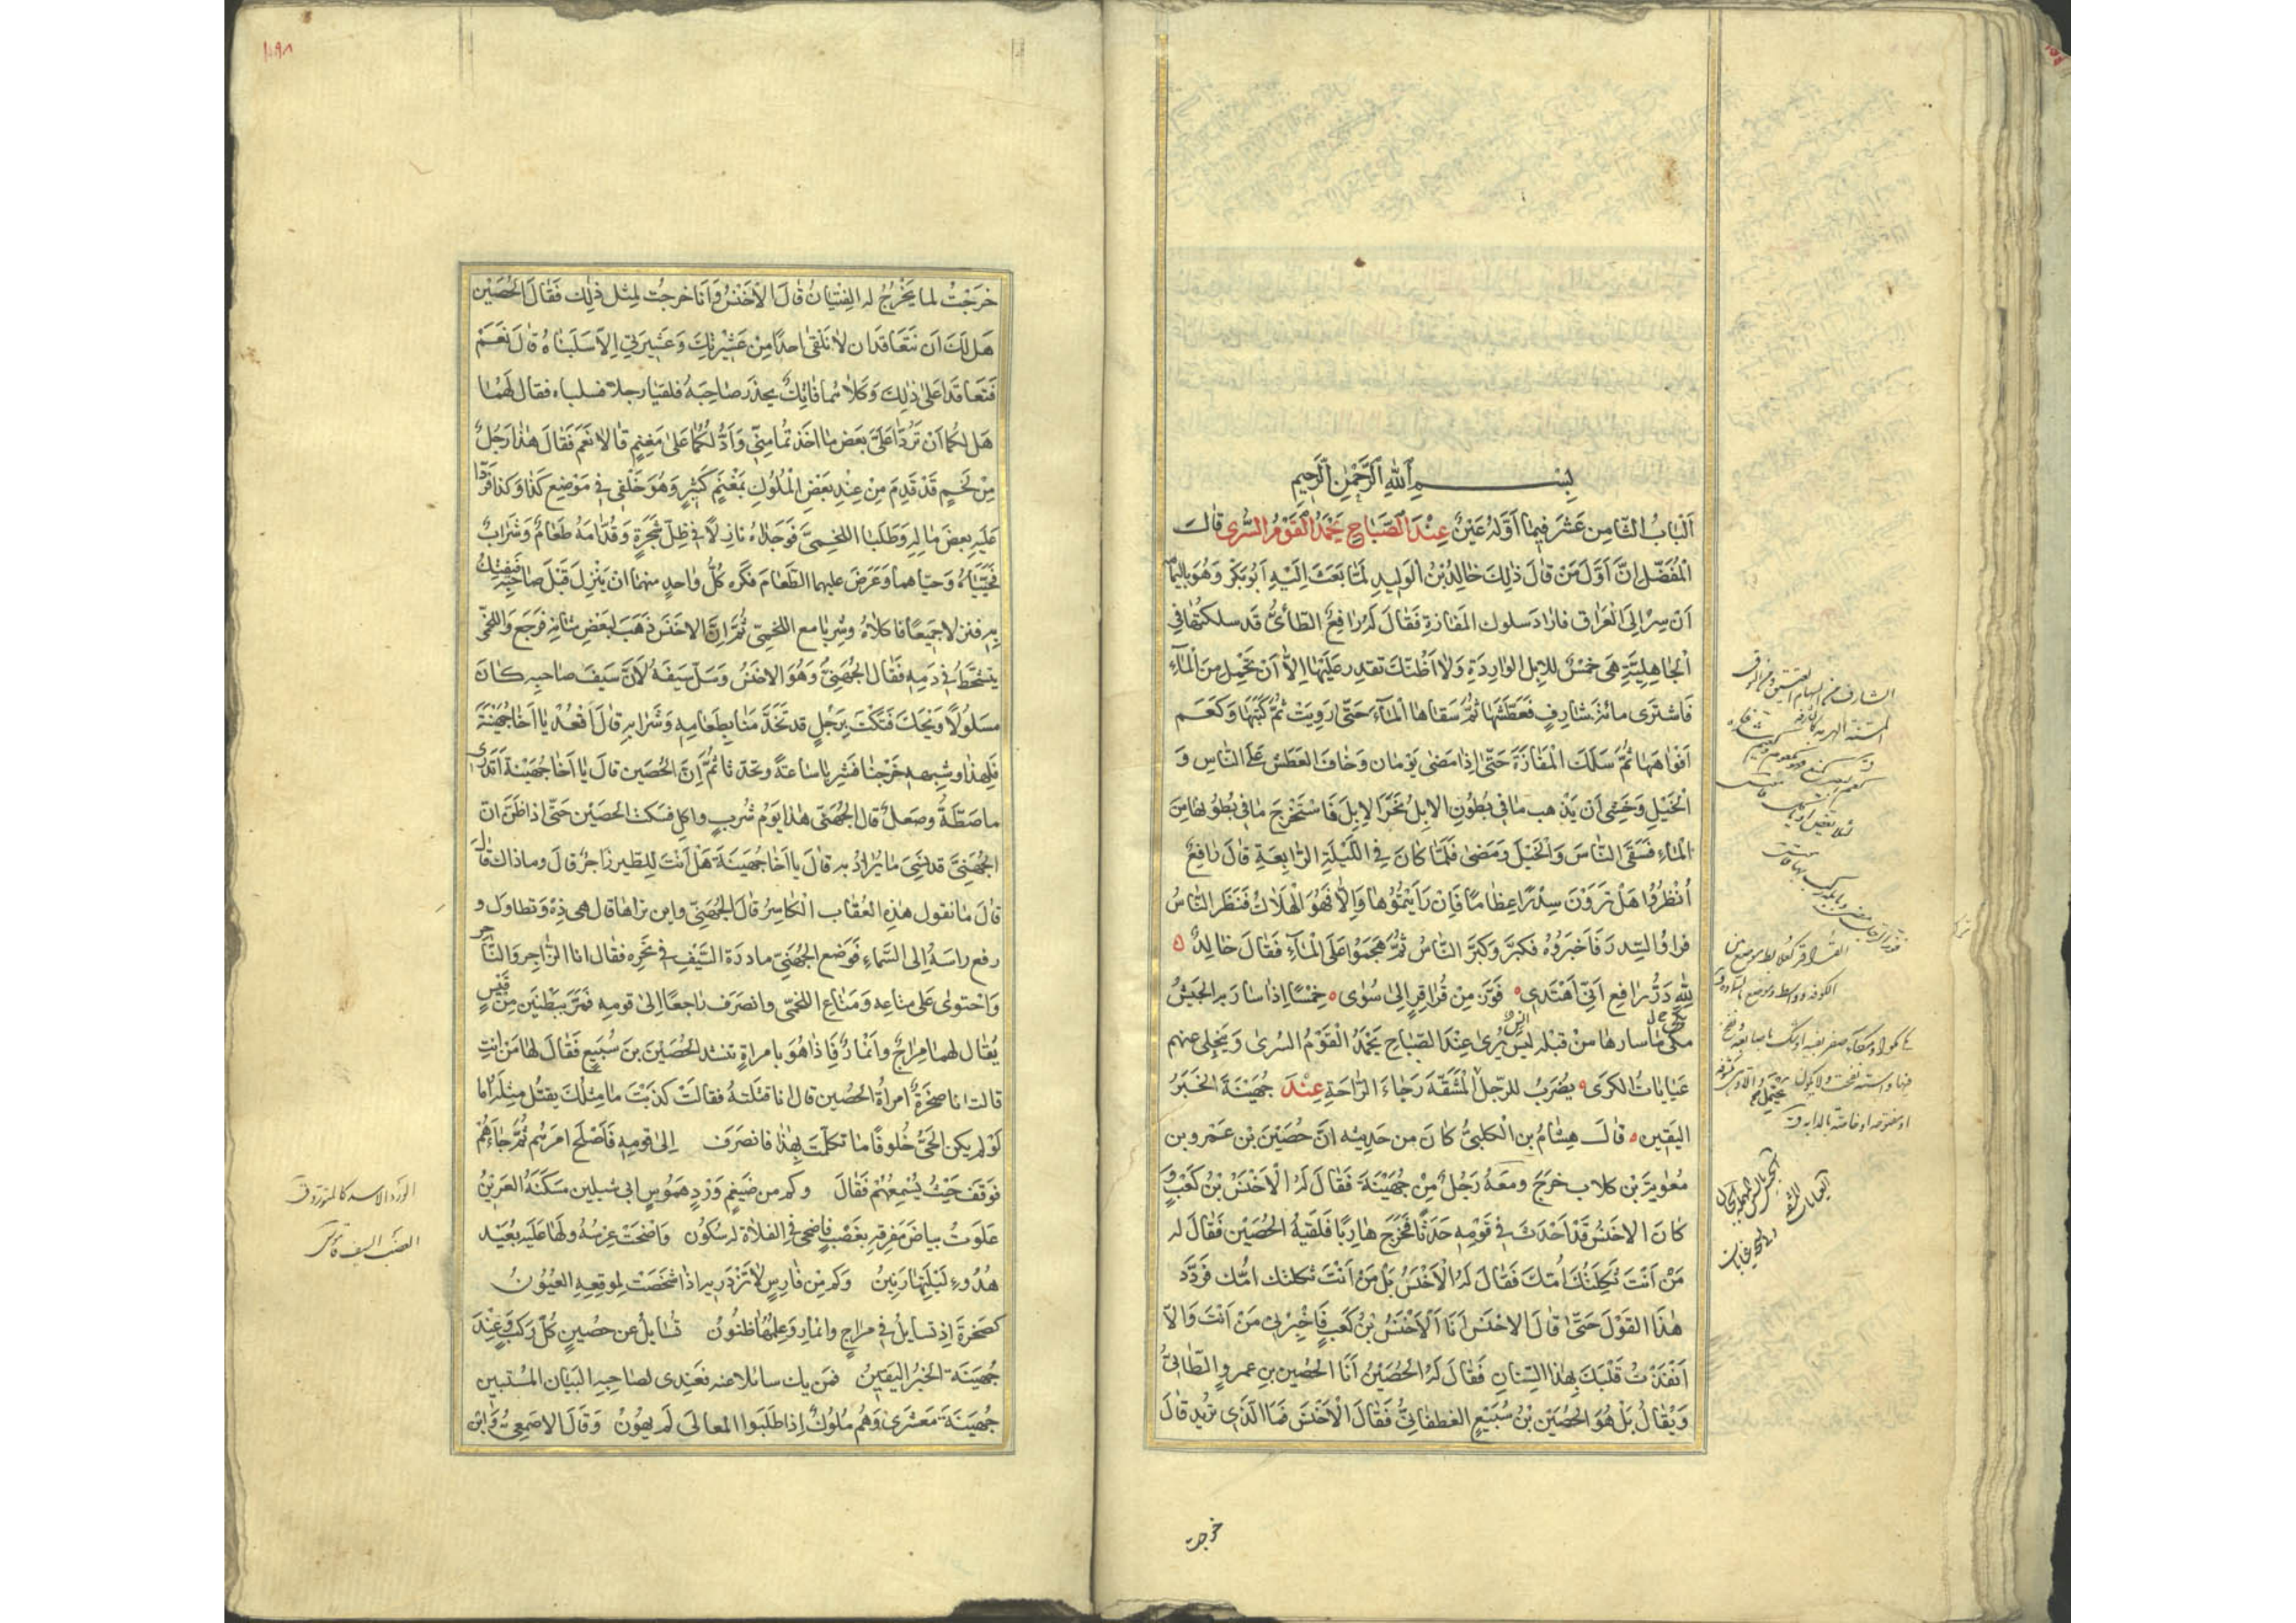 بِسْمِ اللهِ الرَّحْمٰنِ الرَّحِيمِ
اَلْبَابُ الثَّامِن عَشَر فِيمَا اَوَّلهُ عَيْنٌ عِنْدَ الصَّبَاحِ يَحْمَدُ الْقَوْمُ السُّرى قَالَ
الْمُفَضَّل اِنَّ اَوَّلَ مَنْ قالَ ذٰلِكَ خالِدُ بْنُ الْوَلِيدِ لَمَّا بَعَثَ اِلَيْهِ اَبُو بَكْر وَهُوَ بِاليَمَامَة
اَنْ سِرْ اِلَى الْعَرَاق فَارَادَ سلوك المَفازةِ فَقَالَ لَهُ رَافِعٌ الطّائىُّ قَد سلكتُهَا فِي
الْجَاهِلِيَّةِ هِىَ خمْسٌ للاِبِل الوَارِدَةِ وَلا اَظُنُّكَ تقدِر عَلَيْهَا اِلاَّ اَنْ تَحْمِل مِنَ الْمَآءِ
فَاشترَى مائة شارِفٍ فَعَطَّشَهَا ثُمَّ سَقاها الْمَآءَ حَتّى رَوِيَتْ ثُمَّ كتَبَهَا وَكعَمَ
اَفْوَاهَهَا ثُمَّ سَلَكَ الْمَفَازَةَ حَتّى اِذَا مَضىٰ يَوْمَان وَخَافَ العَطَشَ عَلَى النَّاسِ وَ
الْخَيْلِ وَخَشِى اَنْ يَذْهب مَا فِى بُطُونِ الاِبِلِ نحَرَ الاِبِلَ فَاسْتَخْرَجَ مَا فِى بُطُونِهَا مِنَ
الْمَاءِ فَسَقَى النَّاسَ وَالْخَيْلَ وَمَضىٰ فَلَمَّا كَانَ فِى اللَّيْلَةِ الرَّابِعَةِ قَالَ رَافِعٌ
اُنْظُرُوا هَلْ تَرَوْنَ سِدْرًا عِظَامًا فَاِنْ رَاَيْتمُوْهَا وَاِلاَّ فَهُوَ الْهلاكُ فَنَظَرَ النَّاسُ
فراوُا السِّدرَ فَاَخبَرُوهُ فكبَّرَ وَكَبَّرَ النَّاسُ ثُمَّ هَجَمُوا عَلَى الْمَآءِ فَقَالَ خَالِدٌ
لِلّٰهِ دَرُّ رَافِعِ اَنّى اهْتَدى فَوَّزَ مِنْ قُرَاقِرٍ اِلى سُوٰى خِمْسًا اِذَا سَارَ بِهِ الجَيْشُ
بَكى مَا سارها مِنْ قَبْلِه اِنس يُرىٰ عِنْدَ الصَّبَاحِ يَحْمَدُ الْقَوْمُ السُرىٰ وَيَنْجَلِى عنهم
غَيَابَاتُ الكرَى يُضْرَبُ للرَّجُلِ الْمشَقَّةَ رَجَاءَ الرَّاحَةِ عِنْدَ جُهَيْنَةَ الخَبَرُ
اليَقِين قَالَ هِشَامُ بن الْكلبىُّ كانَ مِن حَدِيثِه انَّ حُصَيْنَ بْن عَمْرو بن
مُعٰوِيَةَ بْن كلاب خَرَجَ وَمَعَهُ رَجُلٌ مِنْ جُهَيْنَةَ فَقَالَ لَهُ الْاَخْنَسُ بْنُ كَعْبٍ وَ
كَانَ الاخنَسُ قَدْ اَحْدَثَ فِى قَوْمِهِ حَدَثًا فَخَرَجَ هَارِبًا فَلَقِيَهُ الحُصَيْن فَقَالَ له
مَنْ اَنْتَ ثَكِلَتْكَ اُمّكَ فَقَالَ لَهُ الْاَخْنَسُ بَلْ مَنْ اَنْتَ ثكلتك اُمّك فَرَدَّدَ
هٰذَا القَوْلَ حَتّى قَالَ الاخنَس اَنَا اَلْاَخْنَسُ بْنُ كَعْبٍ فَاَخْبِرْنِى مَنْ اَنْتَ وَاِلاَّ
اَنْفَذْتُ قَلْبَكَ بِهٰذَا السِّنَانِ فَقَالَ لَهُ الحُصَيْنُ اَنَا الحُصَين بنِ عمروٍ الطّائىُّ
وَيُقَالُ بَلْ هُوَ الحُصَيْن بْنُ سُبَيْعٍ الغطفانىُّ فَقَالَ الْاَخْنَسُ فَمَا الَّذِى تُرِيد قَالَ
خرجت
خَرَجْتُ لما يَخْرُجُ له الفِتْيَانُ قَالَ الاَخْنَسُ وَاَنَا خرجتُ لِمِثْل ذٰلِك فَقَالَ الحُصَيْن
هَل لَكَ اَن نَتَعَاقَد اَن لا نَلْقىٰ احدًا مِنْ عَشِيْرتِكَ وَعَشِيرَتِى اِلاّ سَلَبْنَاهُ قَالَ نَعَمْ
فَتَعَاقَدَا عَلىٰ ذٰلِكَ وَكِلاهُما فَاتِكٌ يحذَر صَاحِبَهُ فلقيَا رجلا فسلباه فقال لَهُمَا
هَل لكُمَا اَنْ تَرُدَّا عَلَىَّ بَعْضَ مَا اخَذتُمَا مِنّى وَاَدُلُّكُمَا عَلىٰ مَغْنِمٍ قَالا نَعَمْ فَقَالَ هٰذَا رَجُلٌ
مِنْ لَخْمٍ قَدْ قَدِمَ مِنْ عِنْدِ بَعْضِ الْمُلُوكِ بِمَغْنَمٍ كَثِيرٍ وَهُوَ خَلْفِى فِى مَوْضِعِ كَذَا وَكذَا فَرَدّا
عَلَيْهِ بَعْضَ مَالِه وَطَلَبَا اللّخمِىَّ فَوَجَدَاهُ نازلاً فِى ظِلّ شَجَرَةٍ وَقُدّامَهُ طَعَامٌ وَشَرَابٌ
فَحَيَّيَاهُ وَحيّاهما وَعَرَضَ عليهما الطَّعَامَ فكَره كُلُّ وَاحِدٍ منهمَا انْ يَنْزِلَ قَبْلَ صَاحِبِه فَيَفْتِكُ
بِهِ فنزلا جَمِيعًا فاكلاهُ وشَرِبَا مع اللخمِىّ ثُمَّ اِنَّ الاخنَس ذَهَبَ لِبَعْضِ شانِهِ فَرَجَعَ وَاللخمِىُّ
يتشحَّطُ فِى دَمِهِ فَقَالَ الجُهَنِىُّ وَهُوَ الاخنَسُ وَسَلَّ سَيْفَهُ لاَنَّ سَيْفَ صاحِبِهِ كَانَ
مسَلُولاً وَيْحَكَ فَتَكْتَ بِرَجُلٍ قَد تَحَرَّمْنَا بِطَعَامِهِ وَشَرَابِهِ قَالَ اُقْعُدْ يَا اَخَا جُهَيْنَةَ
فَلِهٰذَا وشِبْهِه خَرَجْنَا فَشَرِبَا سَاعَةً وتحدّثَا ثُمَّ اِنَّ الحُصَين قالَ يَا اَخَا جُهَيْنَة اَتَدْرِى
ما صَعْلَةُ وصَعْلٌ قال الجُهَنىّ هٰذا يَوْمُ شُرْبٍ واكلٍ فسَكت الحصَيْن حَتّى اِذا ظَنّ انّ
الجُهَنِىَّ قد نَسِىَ مَا يُرَادُ بِه قَالَ يا اَخَا جُهَيْنَةَ هَلْ اَنْتَ لِلطّيرِ زَاجرٌ قَالَ وماذاك قال
قَالَ مَا تقول هٰذِهِ العُقَاب الْكَاسِرُ قَالَ الجُهَنِىّ واين تراها قال هى ذِهْ وَتطاول و
رفع راسَهُ اِلى السَّماءِ فَوَضَع الجُهَنِىّ بادرَة السَّيْفِ فِى نَحْرِه فقال انا الزَّاجِر وَالنَّاحِر
وَاحْتوىٰ عَلى متَاعِهِ وَمَتَاعِ اللخمِىّ وانصَرَف رَاجعًا اِلىٰ قومِهِ فَمَرَّ بِبَطْنَيْنِ مِنْ قَيْسٍ
يُقَال لهما مِرَاجٌ وَاَنْمَارٌ فَاِذَا هُوَ بِامرَاةٍ تَنشد الحُصَيْنَ بنَ سُبَيعٍ فَقَالَ لهَا مَنْ انتِ
قالت انا صخْرَةُ امرَاةُ الحُصَين قالَ انا قتَلتهُ فقالَتْ كذَبْتَ مَا مِثْلُكَ يقتُل مِثلَهُ اَمَا
لَوْ لم يكن الحَىُّ خُلُوفًا ما تكلّمْتَ بِهٰذَا فانصَرَفَ اِلىٰ قومِهِ فَاَصْلَحَ امرَهُم ثُمَّ جَاءَهُمْ
فَوَقَفَ حَيْثُ يُسْمِعُهُمْ فَقَالَ وكم من ضَيْغَمٍ وَرْدٍ هَمُوسٍ ابى شبلين مَسكَنُهُ العَرِيْنُ
عَلَوتُ بياضَ مَفرِقِهِ بِعَضْبٍ فَاَضحى فِى الفلاةِ له سُكُون وَاَضْحَتْ عِرْسُهُ وَلَهَا عَلَيْهِ بُعَيْدَ
هُدُوءِ لَيْلِهَا رَنِينُ وكم مِنْ فَارِسٍ لا تَزْدَرِيهِ اِذَا شَخَصَتْ لِموقِعِهِ العُيُونُ
كصَخرَةَ اِذ تسَايلُ فِى مَرَاجٍ وانمَارٍ وَعِلْمُهَا ظنُونُ تُسَايلُ عن حُصَينٍ كُلَّ رَكبٍ وَعِنْدَ
جُهَينَةَ الخَبَرُ اليَقِينُ فمَن يك سائلا عنه فعِنْدِى لصَاحِبِه البَيَان المُسْتبين
جُهَينَةَ مَعْشَرِى وَهُم مُلُوكٌ اِذَا طَلَبَوا المعالىَ لَم يهُونُ وَقَالَ الاصمَعِىُّ وَابن